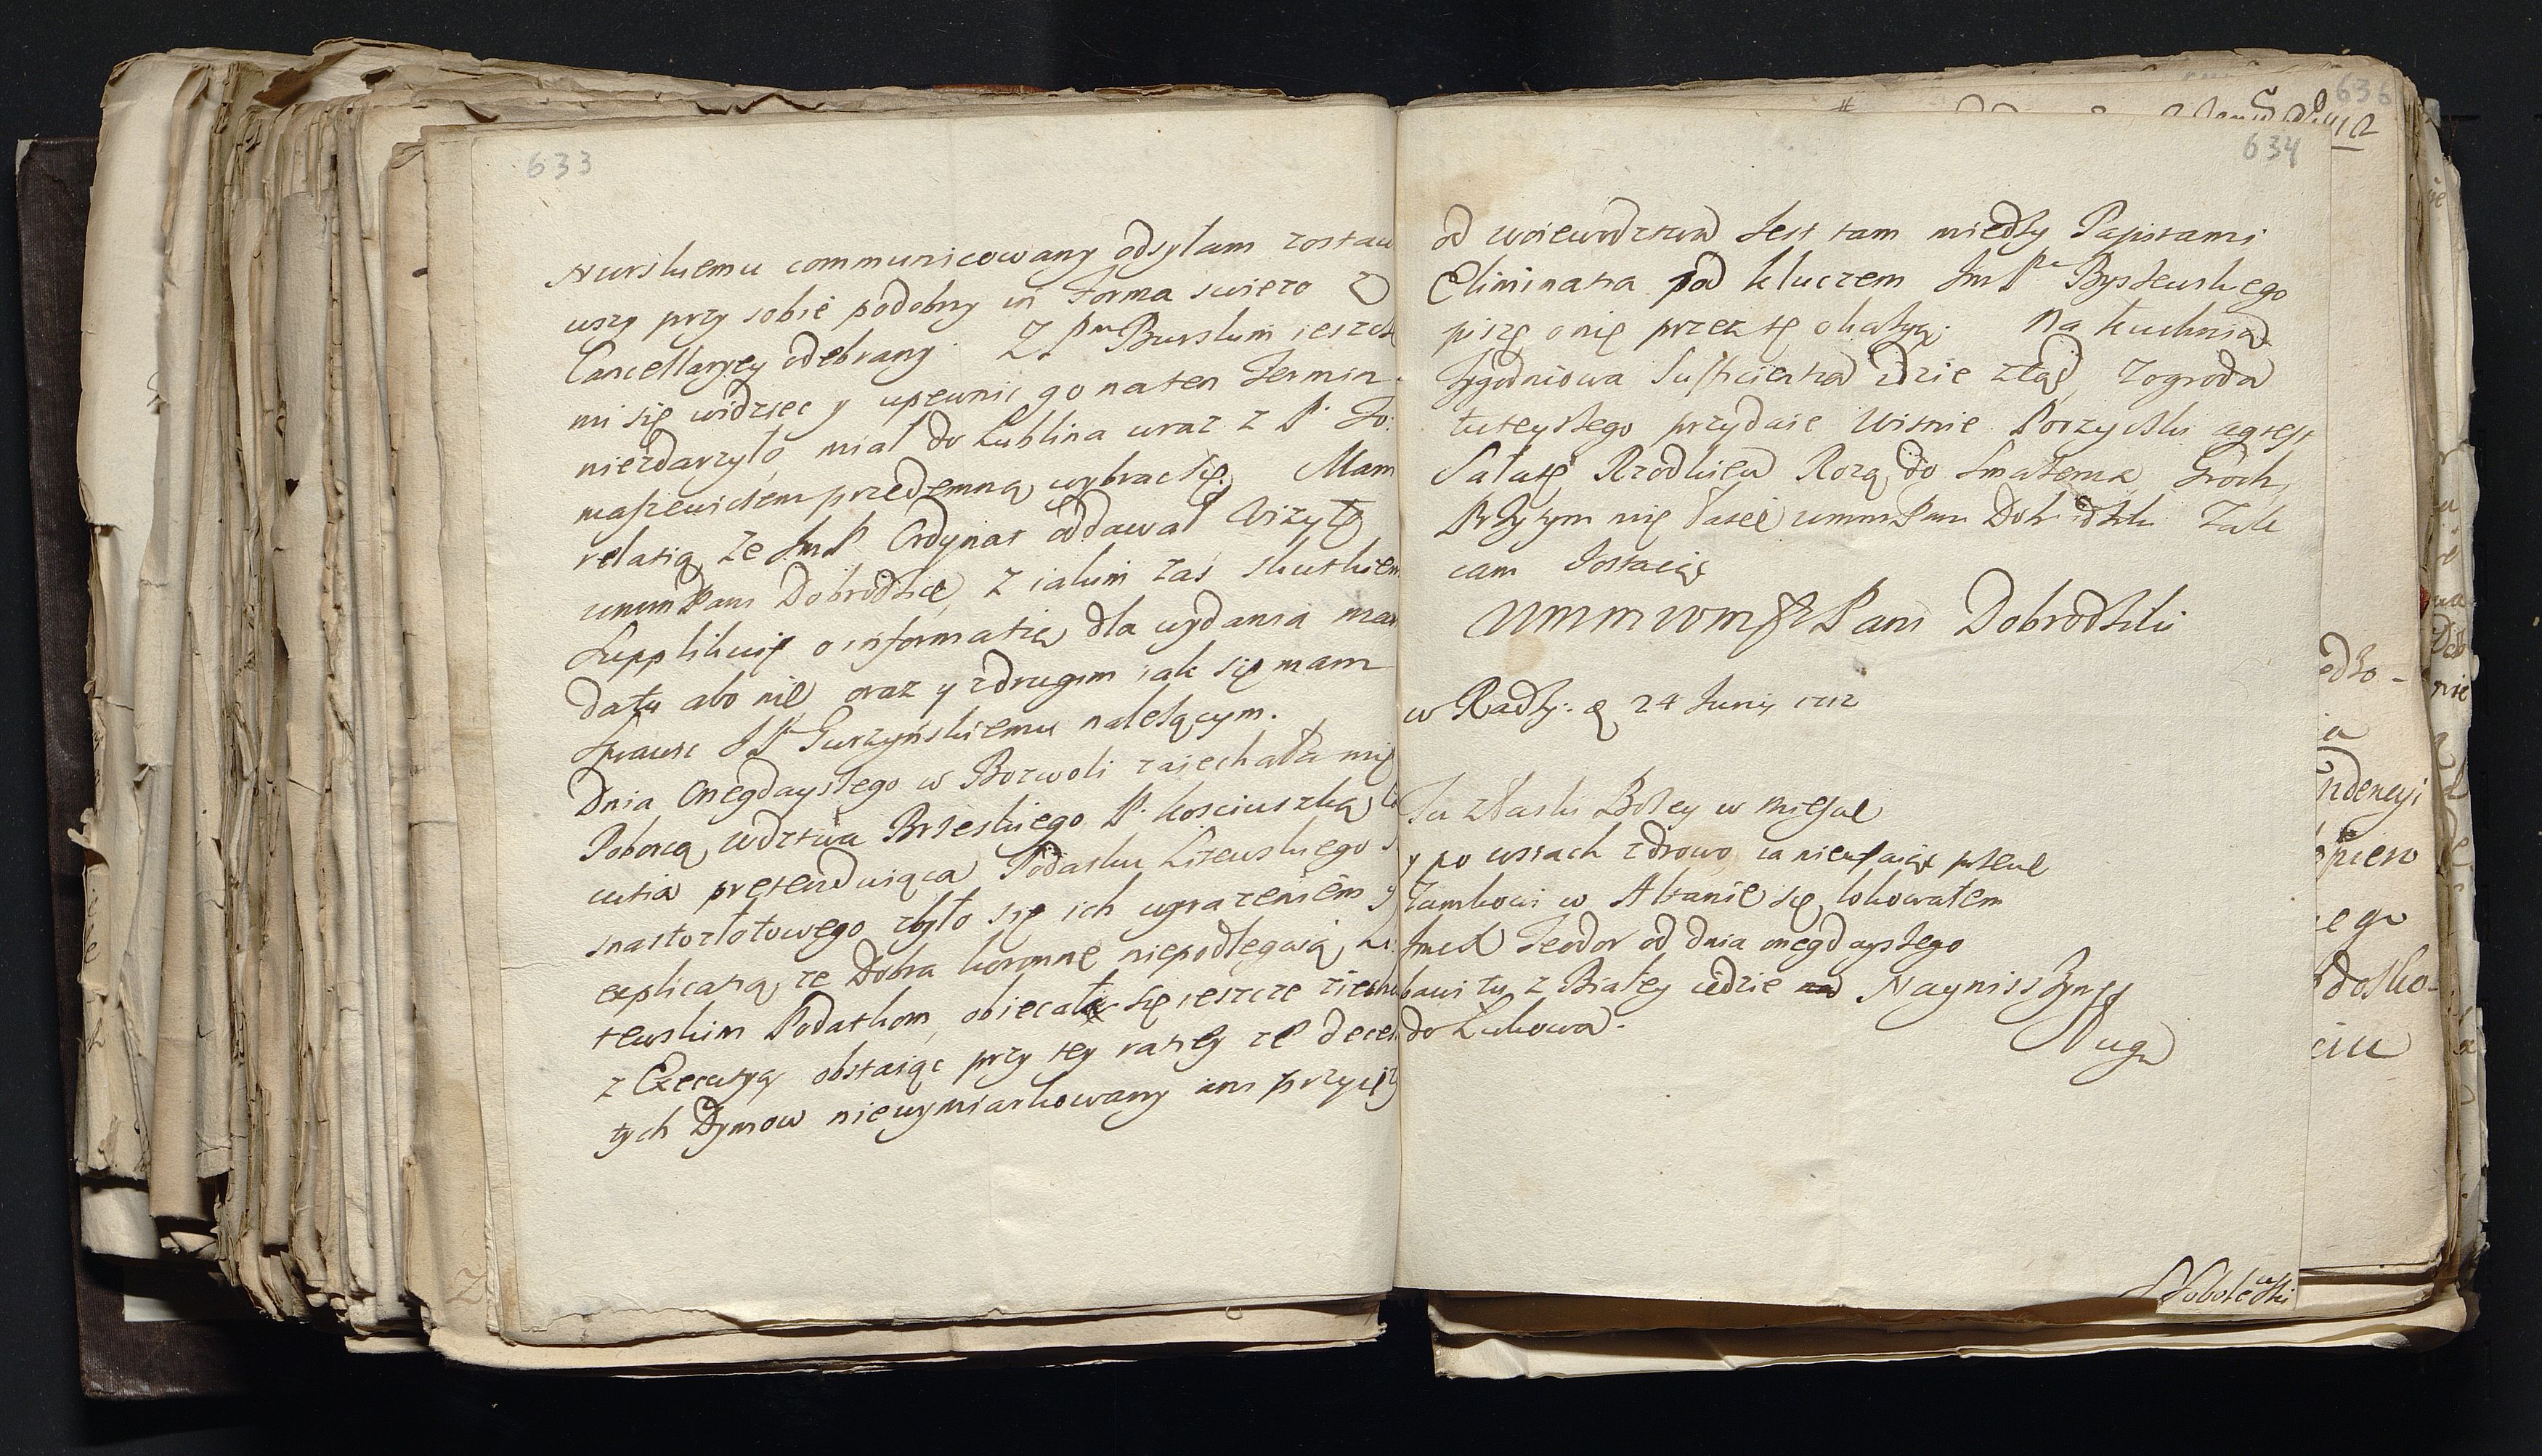 633
Nurskiemu communicowany odsyłam zostaw
uszy przy sobie podobny in Forma swiezo z
Cancellaryey odebrany. Z Pm Burskim ieszcze
mi się widziec y upewnic go na ten Termin
niezdarzyło, miał do Lublina wraz z P. To:
maszewiczem przedemną wybrac się. Mam
relatią ze JmP. Ordynat oddawał Wizytę
ummPani Dobrodźice, z iakim zas skutkiem
Supplikuię o informatią dla wydania man
datu abo nie oraz y zdrugim iak się mam
sprawic JP Gurzynskiemu nalezącym.
Dnia Onegdayszego w Bozwoli zaiechała mię
Poborcą wdztwa Brzeskiego P. Kosciuszką
cutia prętenduiąca Podatku Litewskiego
snastozłotowego zbyło się ich ugrazeniem y
explicatią, ze Dobra koronne niepodlęgaią Li
tewskim Podatkom, obiecali się ieszcze ziecha
z Executyą obstaiąc przy tey ratiey ze decess
tych Dymow niewymiarkowany ani przyięty
636
634
od woiewodztwa Jest tam miedzy Papirami
Eliminatia pod kluczem JmPa Byszewskiego
piszę o nię przez tę okazyą. Na kuchnią
Tygodniowa Sufficientia idzie ztąd, zogroda
tuteyszego przydaie Wisnie Porzyczki agrest
Sałatę Rzodkiew Rozą do smazenia Groch,
Przytym mię Łasce ummPani Dobrodziki Zale
cam Zostaiąc
UmmwmP Pani Dobrodziki
w Radzy. d 24 Junij 1712
Tu z Łaski Bozey w mieście
y po wsiach zdrowo, ia nieufaiąc wszeme
Zamkowi w Altanie się lokowałem
Jmcx Teodor od dnia onegdayszego
bawi tu z Białey iedzie do Łukowa.
Nayniszszym
Sługą
Sobolewski